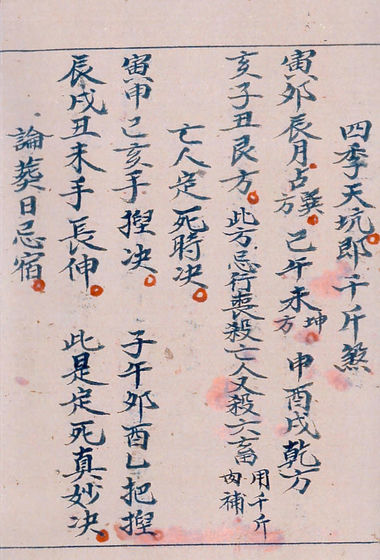 四季天坑郎千斤煞
寅卯辰月占巽方 己午未坤方 申酉戌乾方
亥子丑艮方 此方忌行喪殺亡人又殺六畜 用千斤肉補
亡人定死時决
寅申己亥手揑决 子午卯酉乚把揑
辰戌丑未手長伸 此是定死真妙决
論葬日忌宿